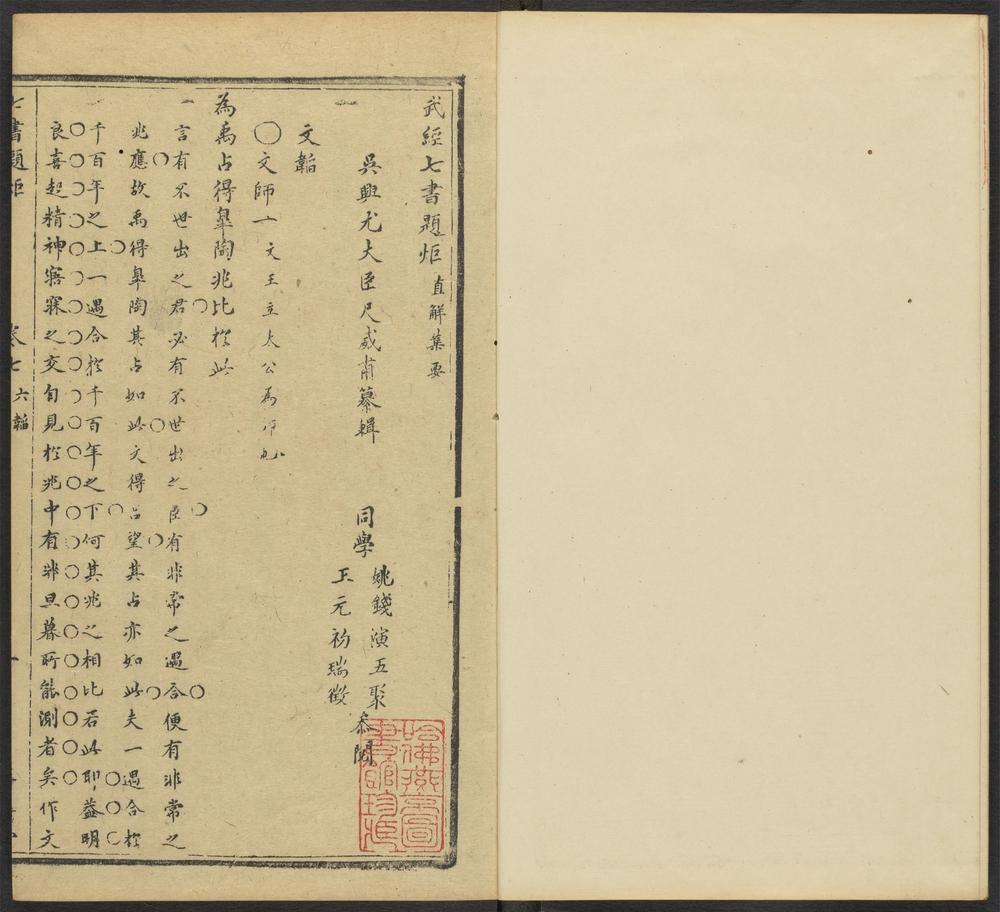 武經七書題炬 直解集要
吳興尤大臣尺威甫纂輯
同學
姚錢演五聚
王元初瑞徵
叅閱
文韜
○文師一 文王立太公為師也
為禹占得臯陶兆比於此
言有不世出之君必有不世出之臣有非常之遇合便有非常之
兆應故禹得臯陶其占如此文得呂望其占亦如此夫一遇合於
千百年之上一遇合於千百年之下何其兆之相比若此耶益明
良喜起精神寤寐之交自見於兆中有非旦暮所能測者矣作文
七書題炬 卷七 六韜 一
哈佛燕京圖書館珍藏